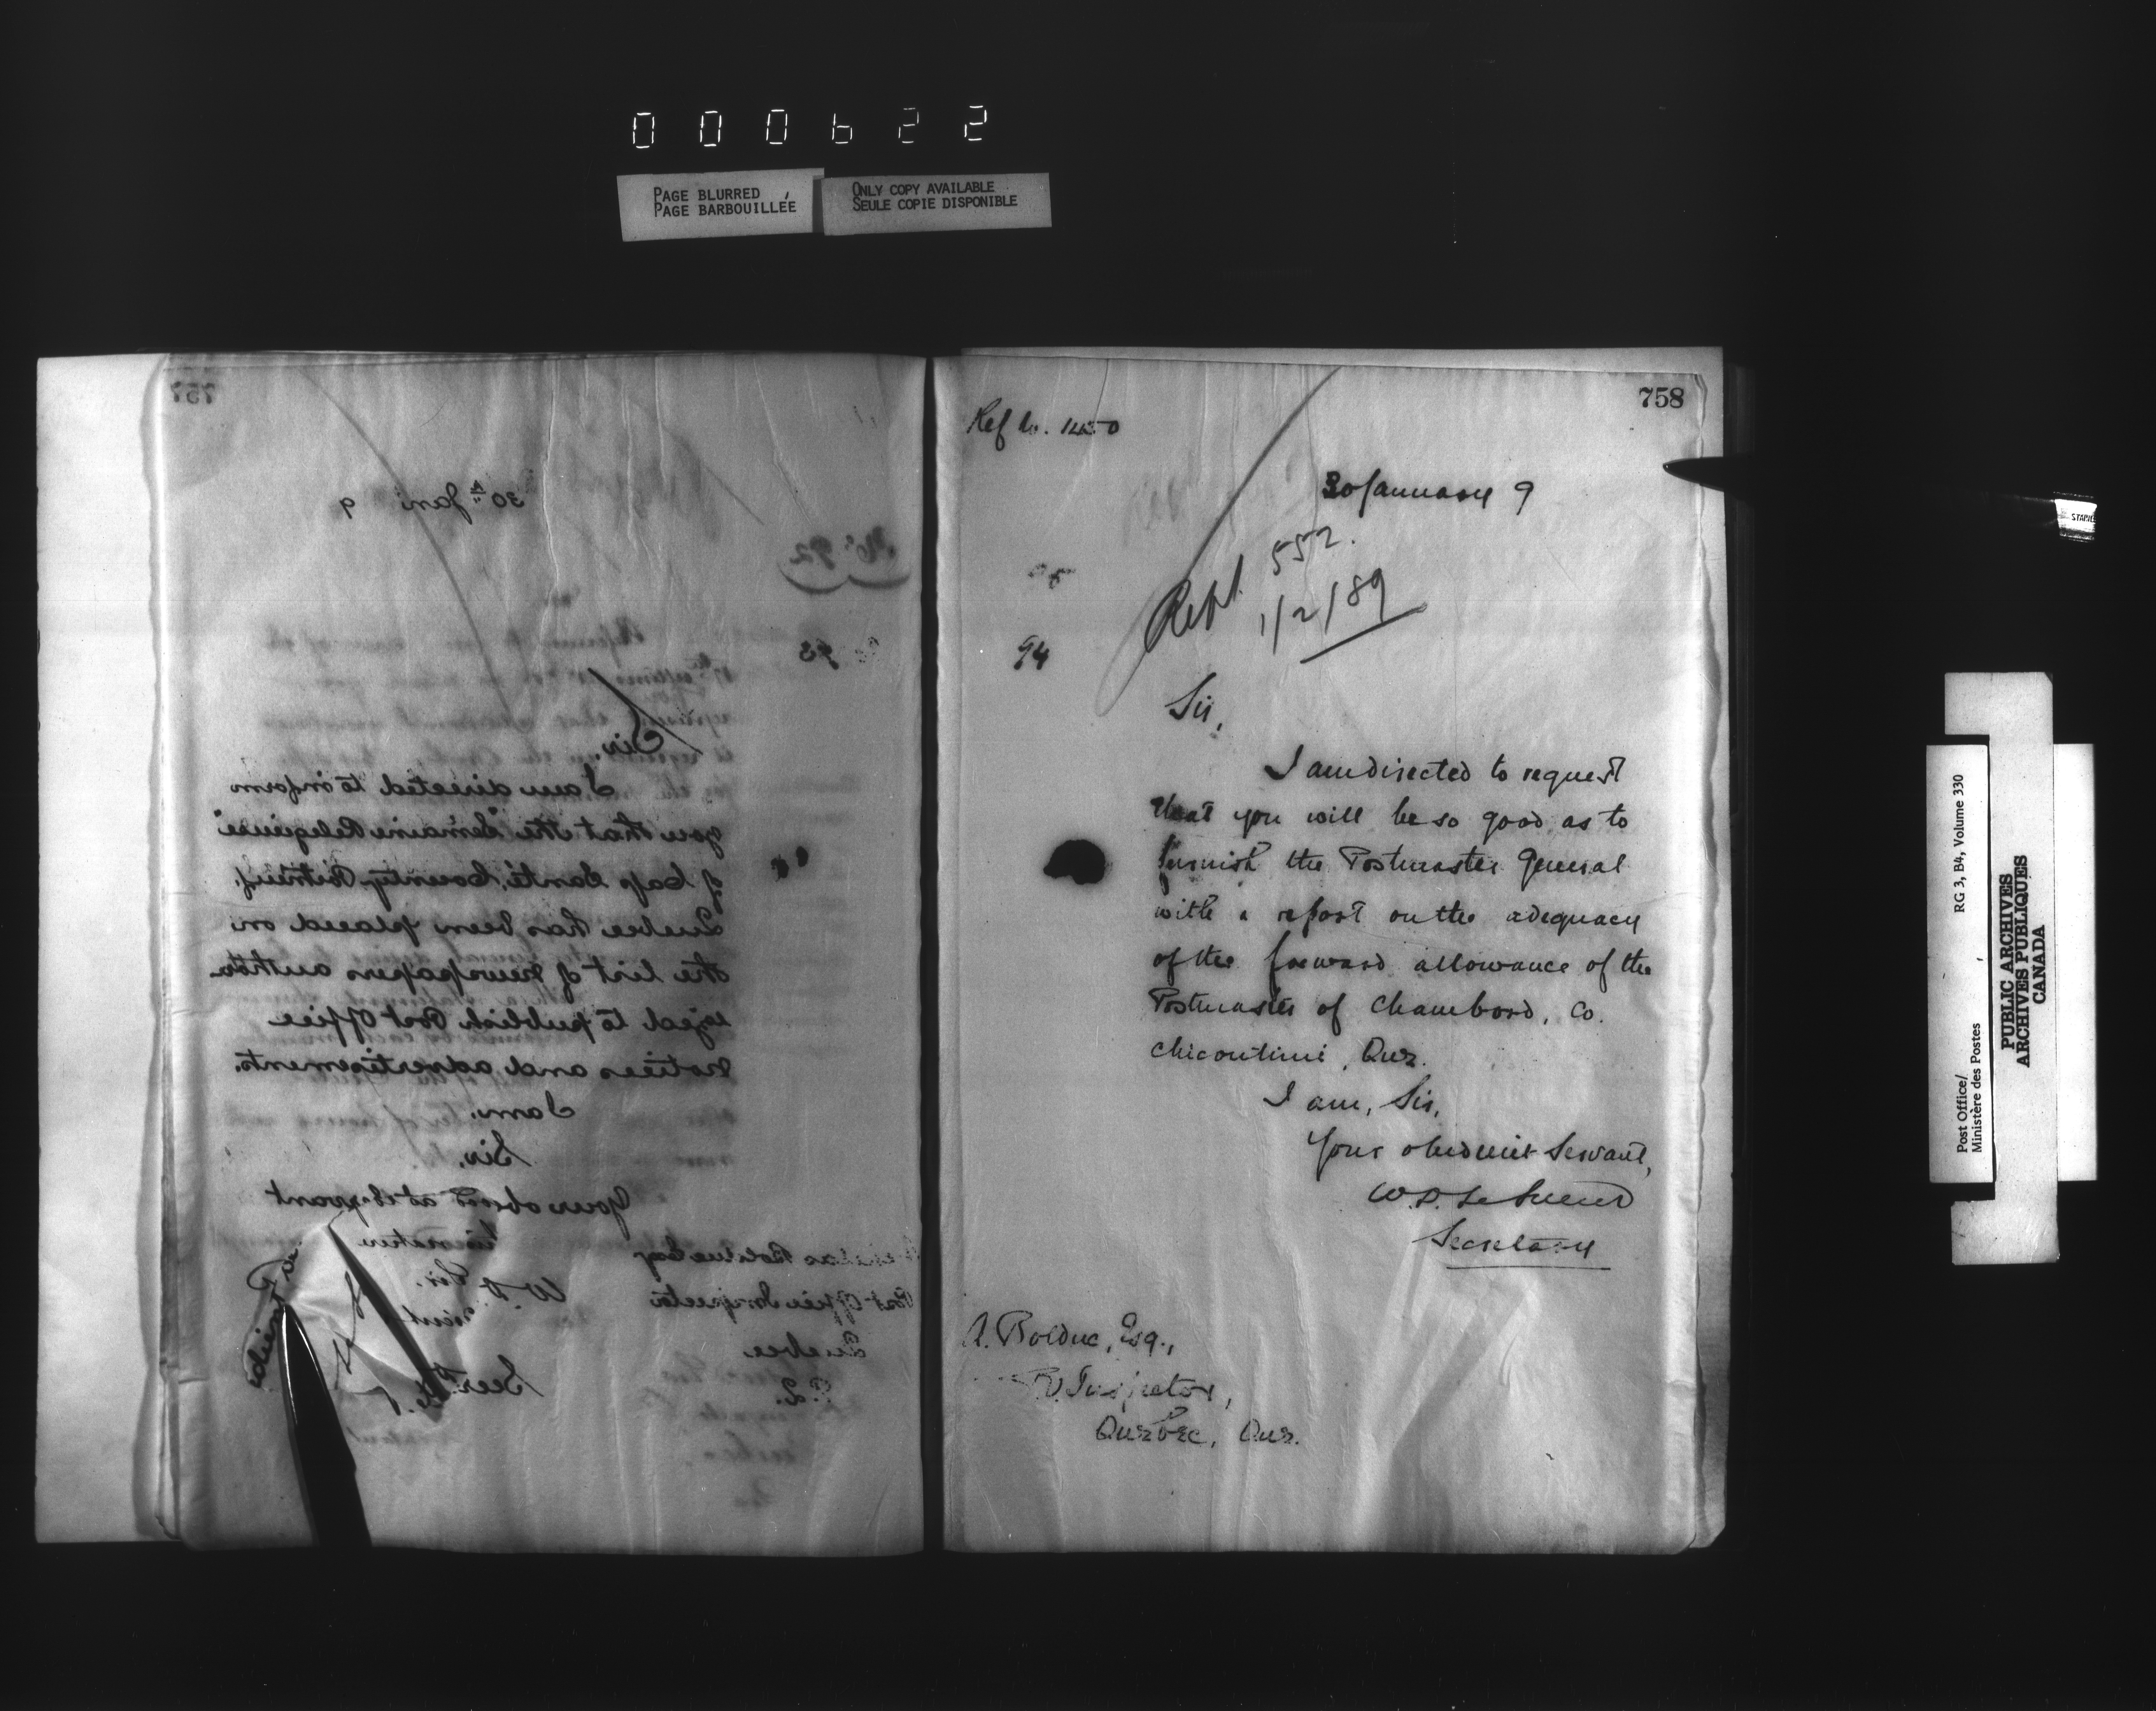 000622
PAGE BLURRED
PAGE BARBOUILLÉE
ONLY COPY AVAILABLE
SEULE COPIE DISPONIBLE
757
30th Jany 9
No 92
93
Sir,
I am directed to inform
you that the "Semaine Religieuse"
of Cap Santé, County Portneuf,
Quebec has been placed on
the list of newspapers autho-
rized to publish Post Office
notices and advertisements.
I am,
Sir,
Your servant
Bolduc Esq
Post Office Inspector
Quebec
P.Q.
758
Ref No. 1450
30 January 9
Rept 552.
1/2/89
94
Sir,
I am directed to request
that you will be so good as to
furnish the Postmaster General
with a report on the adequacy
of the forward allowance of the
Postmaster of Chambord, Co.
Chicoutimi, Que.
I am, Sir,
Your obedient Servant,
W.D. LeSueur
Secretary
A. Bolduc, Esq.,
P.O. Inspector,
Quebec, Que.
STAPLE
Post Office/
Ministère des Postes
RG 3, B4, Volume 330
PUBLIC ARCHIVES
ARCHIVES PUBLIQUES
CANADA